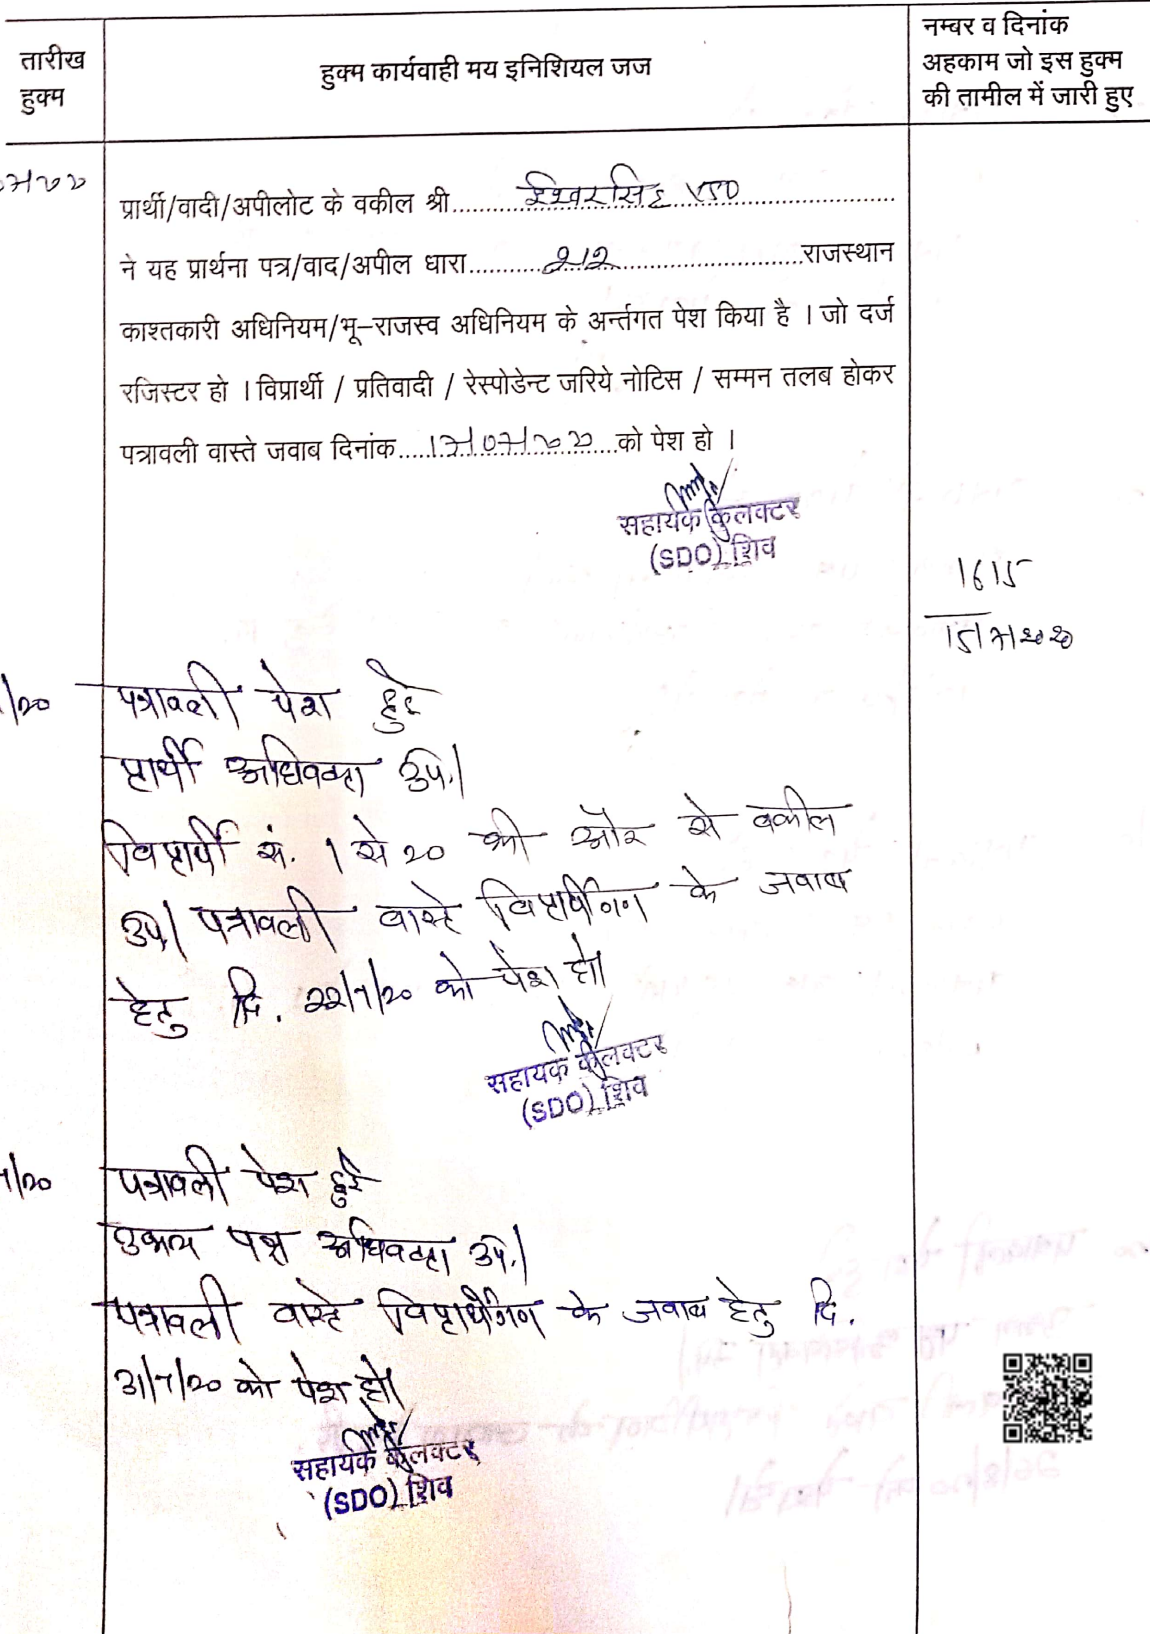 तारीख
हुक्म
हुक्म कार्यवाही मय इनिशियल जज
नम्बर व दिनांक
अहकाम जो इस हुक्म
की तामील में जारी हुए
प्रार्थी/वादी/अपीलोट के वकील श्री.....ईश्वरसिंह.....
ने यह प्रार्थना पत्र/वाद/अपील धारा.....212.....राजस्थान
काश्तकारी अधिनियम/भू–राजस्व अधिनियम के अर्न्तगत पेश किया है । जो दर्ज
रजिस्टर हो । विप्रार्थी / प्रतिवादी / रेस्पोडेन्ट जरिये नोटिस / सम्मन तलब होकर
पत्रावली वास्ते जवाब दिनांक..........को पेश हो ।
सहायक कलक्टर
(SDO) शिव
1615
/20 पत्रावली पेश हुई
प्रार्थी अधिवक्ता उप.।
विप्रार्थी सं. 1 से 20 की और से वकील
उप.। पत्रावली वास्ते विप्रार्थीगण के जवाब
हेतु दि. 22/7/20 को पेश हो।
सहायक कलक्टर
(SDO) शिव
/20 पत्रावली पेश हुई
उभय पक्ष अधिवक्ता उप.।
पत्रावली वास्ते विप्रार्थीगण के जवाब हेतु दि.
31/7/20 को पेश हो।
सहायक कलक्टर
(SDO) शिव